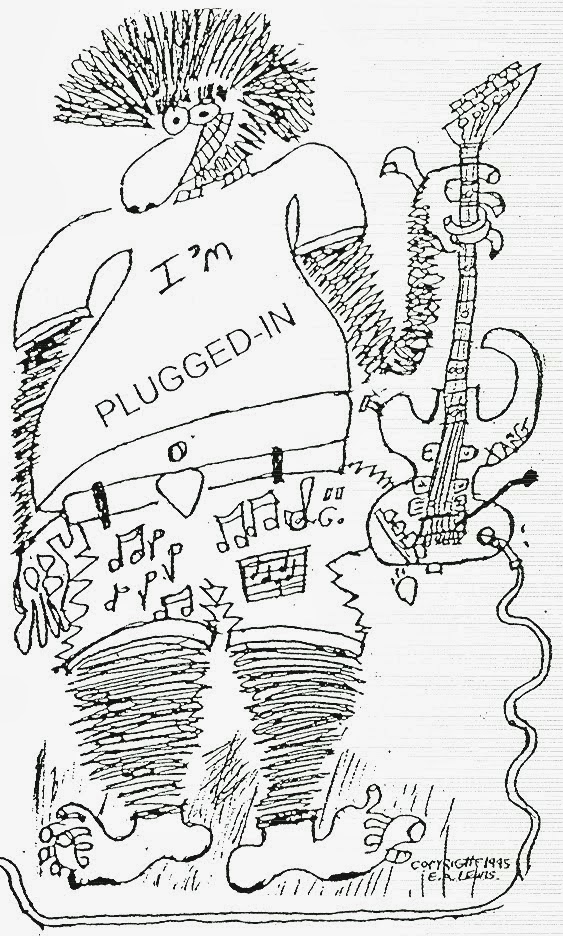 I'm
PLUGGED-IN
G.
COPYRIGHT 1995
E.A. LEWIS.